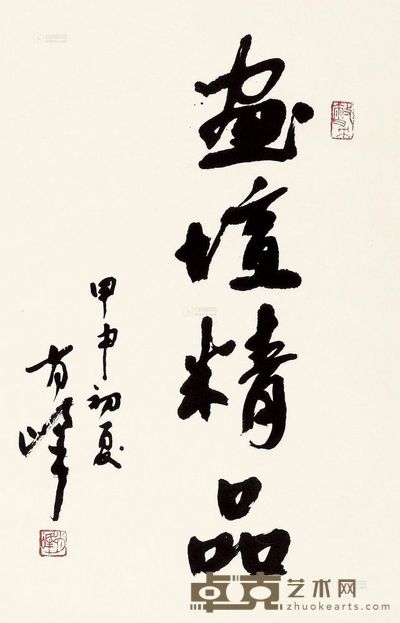 畫壇精品
甲申初夏
肖峰
卓克艺术网
zhuokearts.com